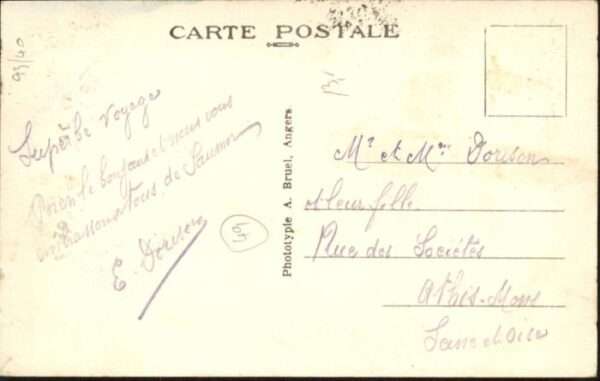 CARTE POSTALE
93/40
Superbe voyage
bonjour et nous vous
embrassons tous de Saumur
E. Dorison
Phototype A. Bruel, Angers
Mr et Mme Dorison
et leur fille
Rue des Sociétés
Athis-Mons
Seine et Oise